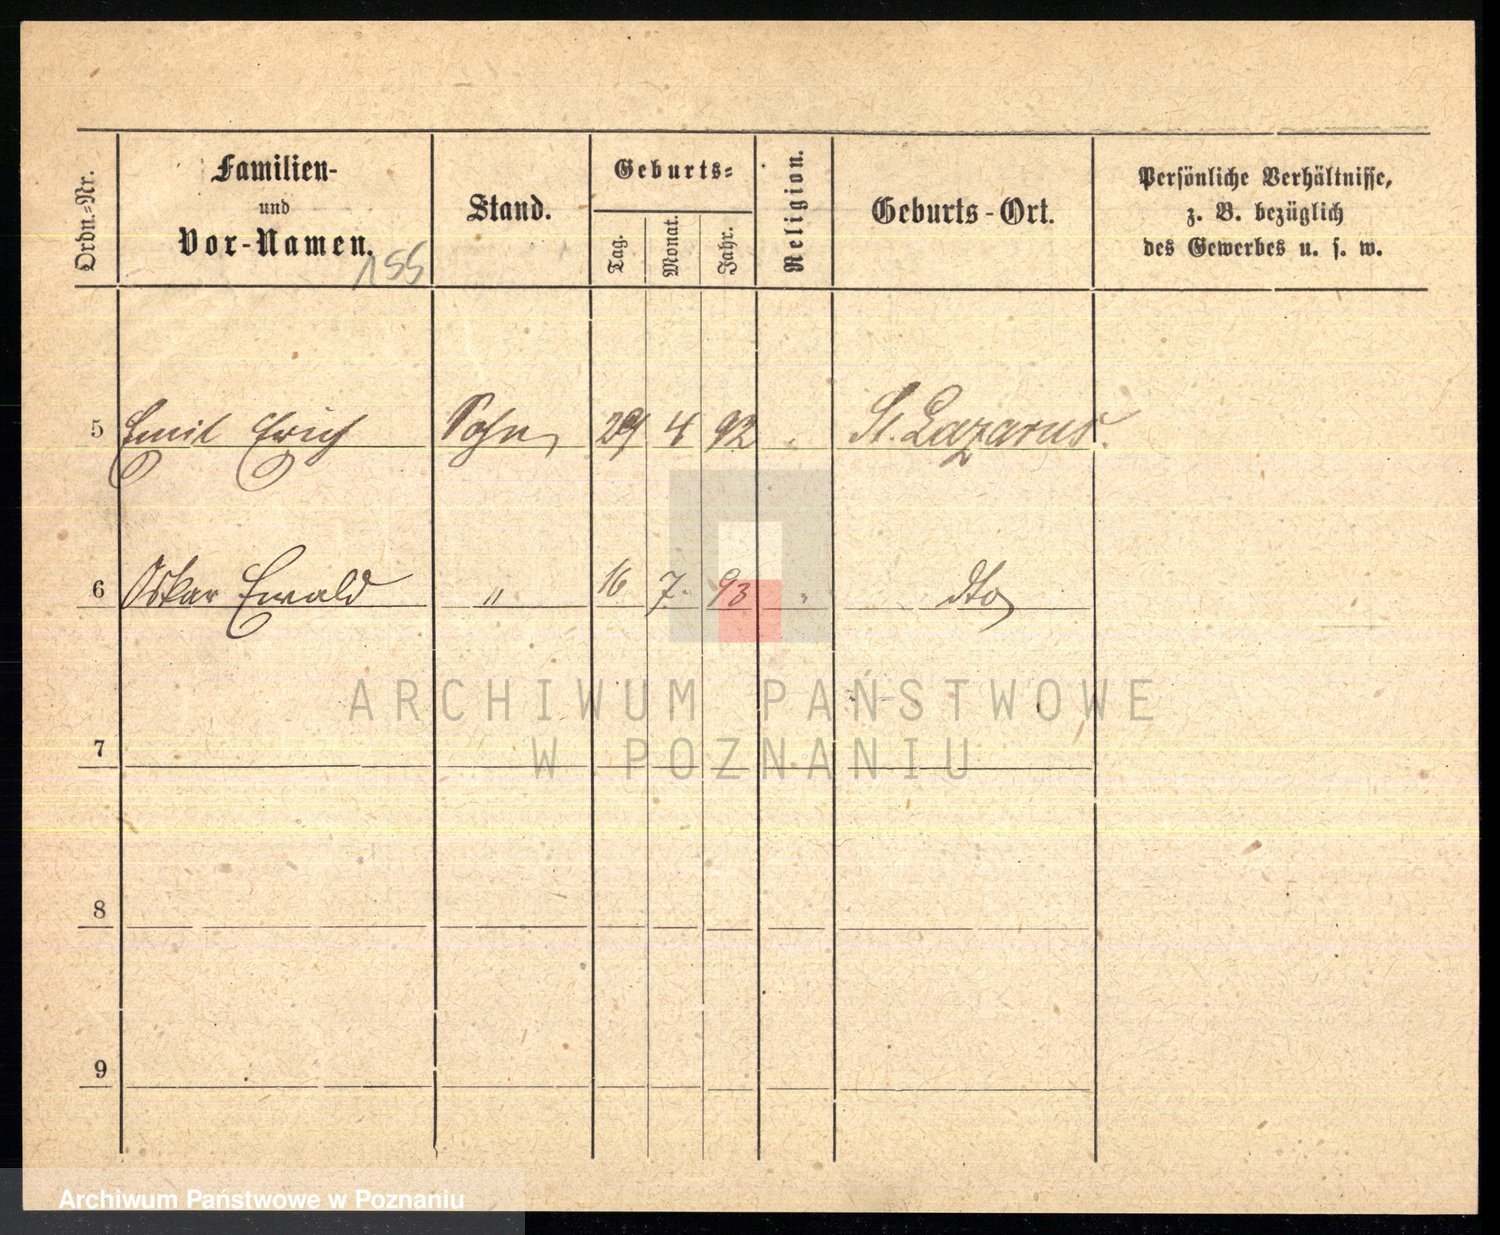 Ordn.-Nr.
Familien-
und
Vor-Namen.
155
Stand.
Geburts-
Tag.
Monat.
Jahr.
Religion.
Geburts-Ort.
Persönliche Verhältnisse,
z. B. bezüglich
des Gewerbes u. s. w.
5 Emil Erich Sohn 29 4 92 " St. Lazarus.
6 Oskar Ewald " 16 7. 93 " dto
ARCHIWUM PAŃSTWOWE
W POZNANIU
7
8
9
Archiwum Państwowe w Poznaniu